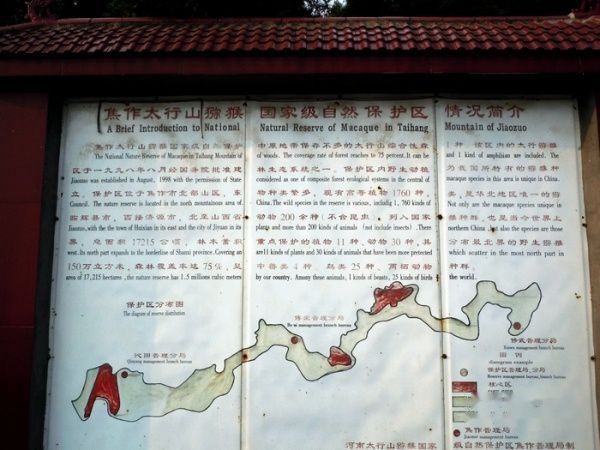 焦作太行山猕猴 国家级自然保护区 情况简介
A Brief Introduction to National Natural Reserve of Macaque in Taihang Mountain of Jiaozuo
The National Nature Reserve of Macaque in Taihang Mountain of
区于一九九八年八月经国务院批准建
Jiaozuo was established in August, 1998 with the permission of State
立，保护区位于焦作市北部山区，东
Council. The nature reserve is located in the north mountainous area of
临辉县市，西接济源市，北至山西省
Jiaozuo, with the the town of Huixian in its east and the city of Jiyuan in its
界，总面积17215公顷，林木蓄积
west. Its north part expands to the borderline of Shanxi province. Covering an
150万立方米，森林覆盖率达75%，是
area of 17,215 hectares, the nature reserve has 1.5 millions cubic meters
中原地带保存不多的太行山综合性森
of woods. The coverage rate of forest reaches to 75 percent. It can be
林生态系统之一。保护区内野生动植
considered as one of composite forest ecological systems in the central of
物种类繁多，现有高等植物1760种，
China. The wild species in the reserve is various, includig 1,760 kinds of
动物200余种（不含昆虫），列入国家
plants and more than 200 kinds of animals (not include insects). There
重点保护的植物11种，动物30种，其
are 11 kinds of plants and 30 kinds of animals that have been more pretected
中兽类4种，鸟类25种，两栖动物
by our country. Among these animals, 4 kinds of beasts, 25 kinds of birds
1种，该区内的太行猕猴
and 1 kind of amphibian are included. The
为我国所特有的猕猴种
macaque species in this area is unique in China.
类，是华北地区唯一的猕
Not only are the macaque species unique in
猴种群，也是当今世界上
northern China, but also the species are those
分布最北界的野生猕猴
which scatter in the most north part in
种群。
the world.
保护区分布图
The diagram of reserve distribution
沁阳管理分局
Qinyang management branch bureau
博爱管理分局
Bo'ai management branch bureau
修武管理分局
Xiuwu management branch bureau
图例
diamgram example
保护区管理局、分局
Reserve management bureau, branch bureau
核心区
焦作管理局
Jiaozuo management bureau
河南太行山猕猴国家级自然保护区焦作管理局制